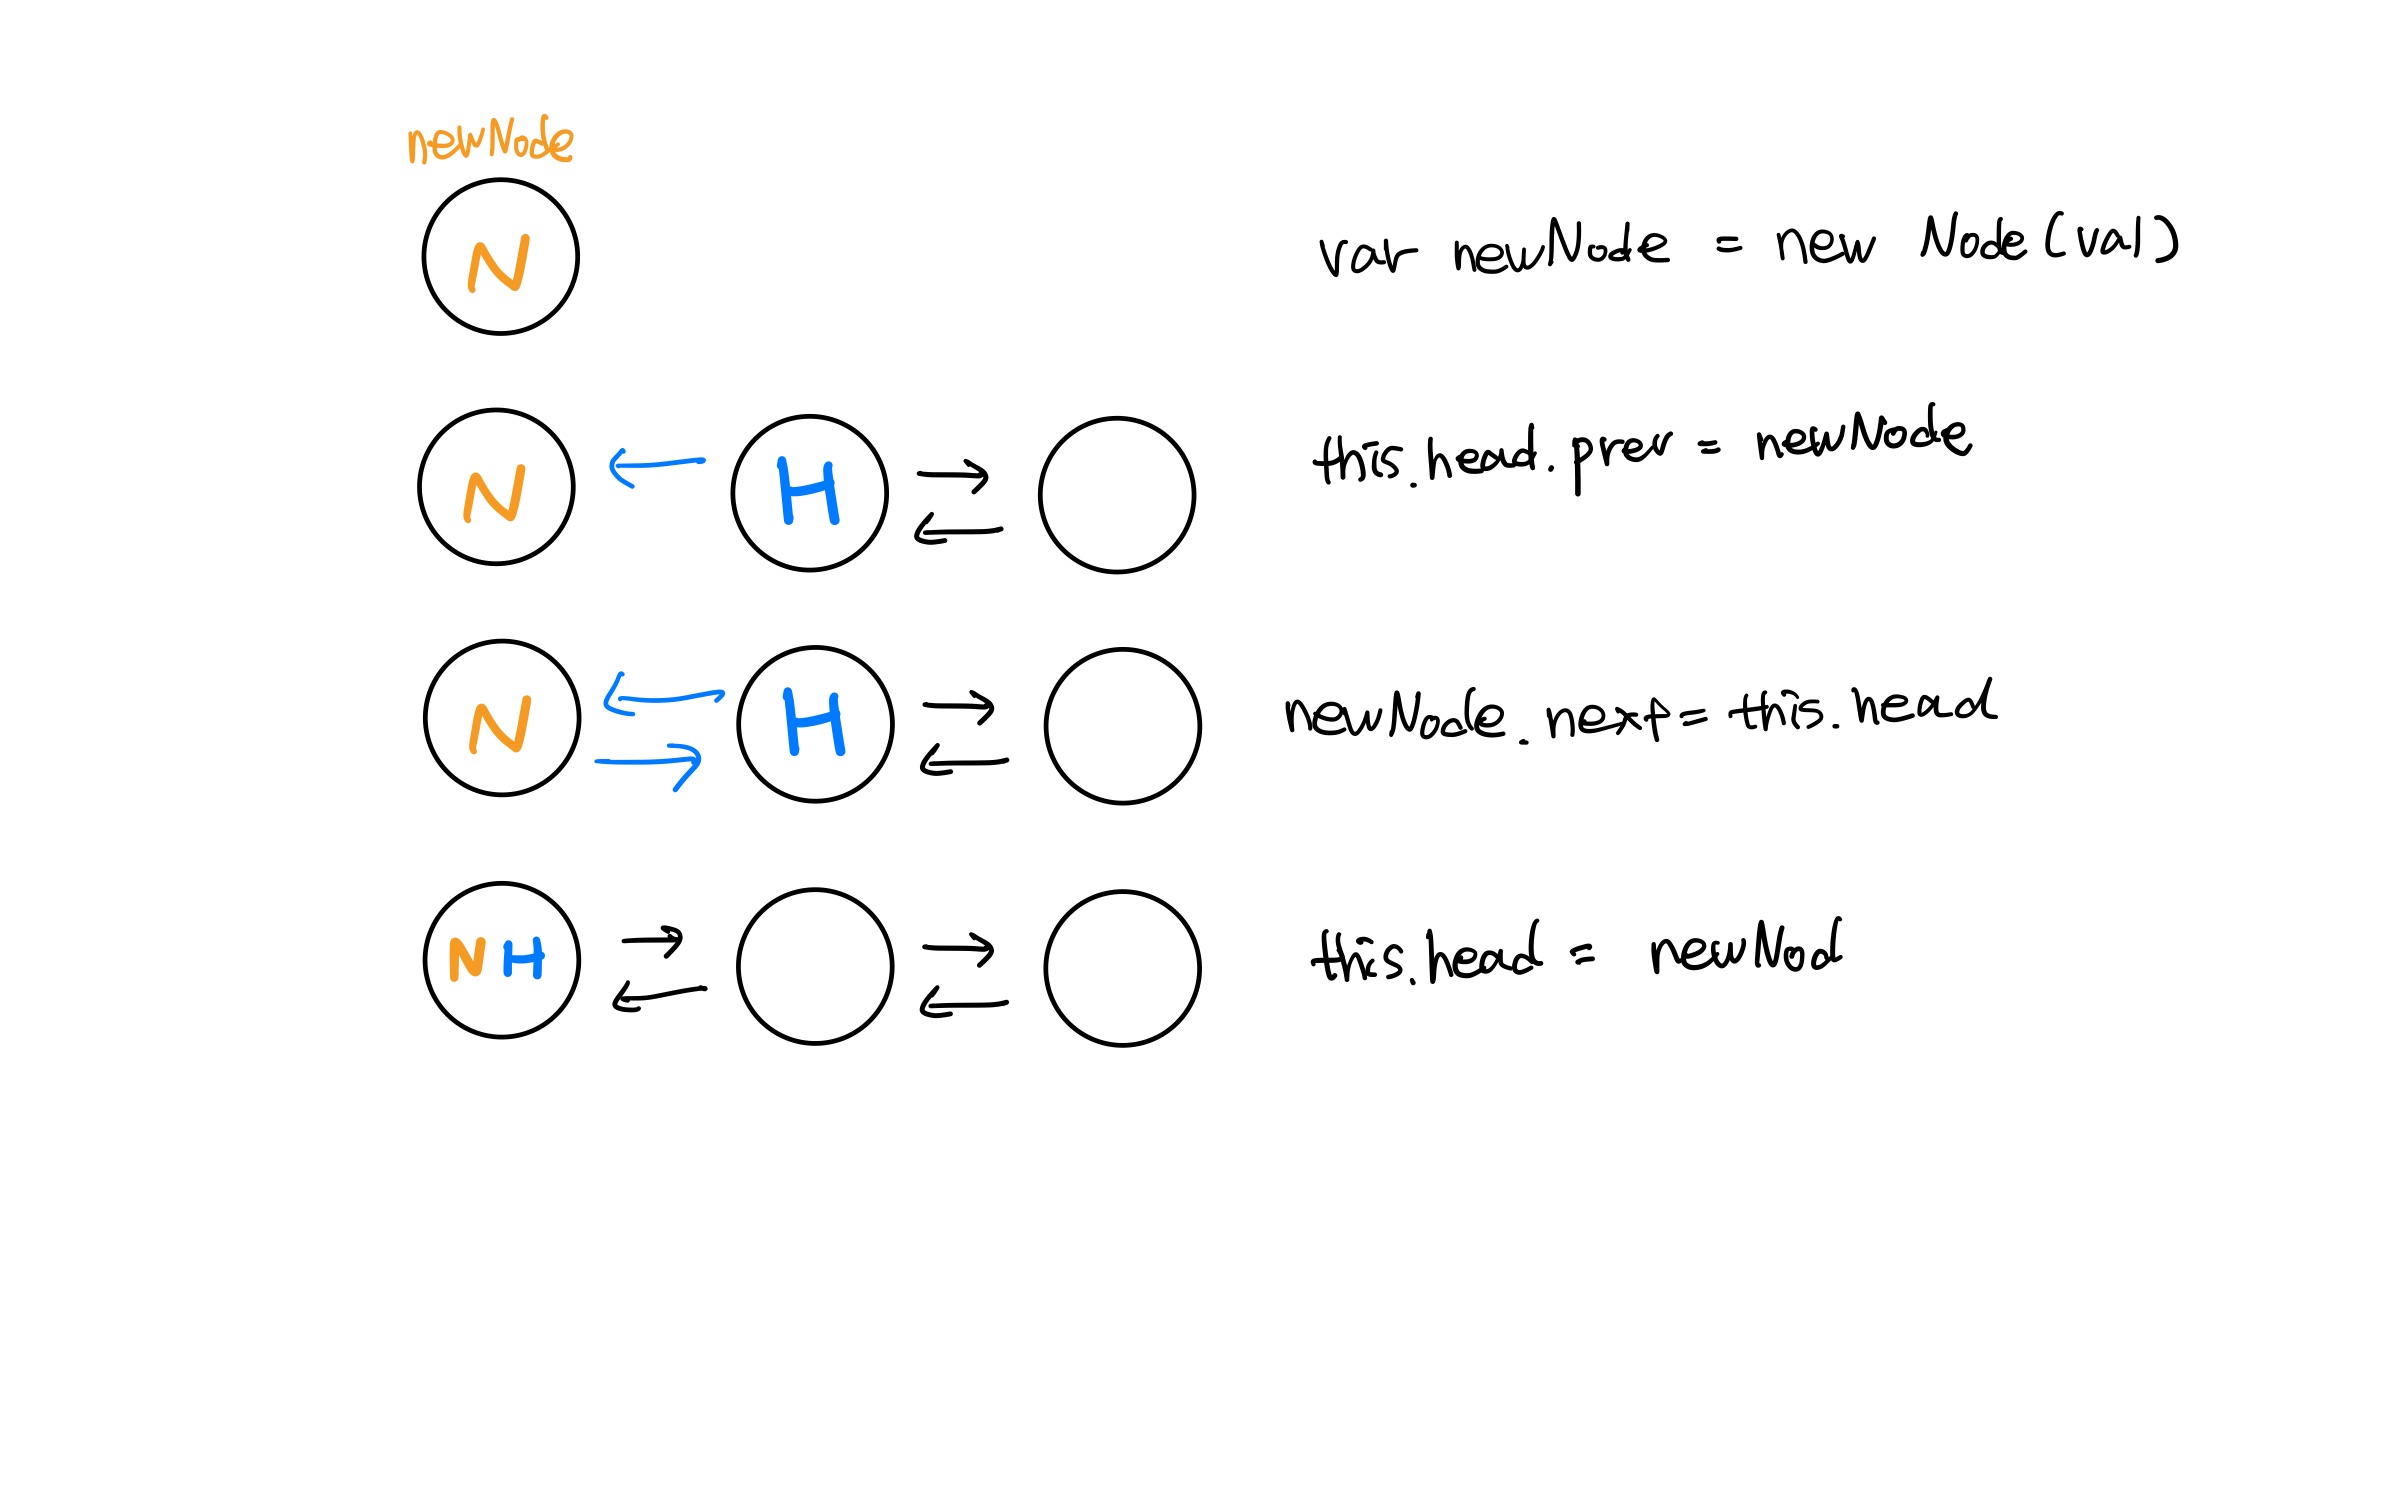 newNode
N
var newNode = new Node(val)
N H
this.head.prev = newNode
N H
newNode.next = this.head
NH
this.head = newNod